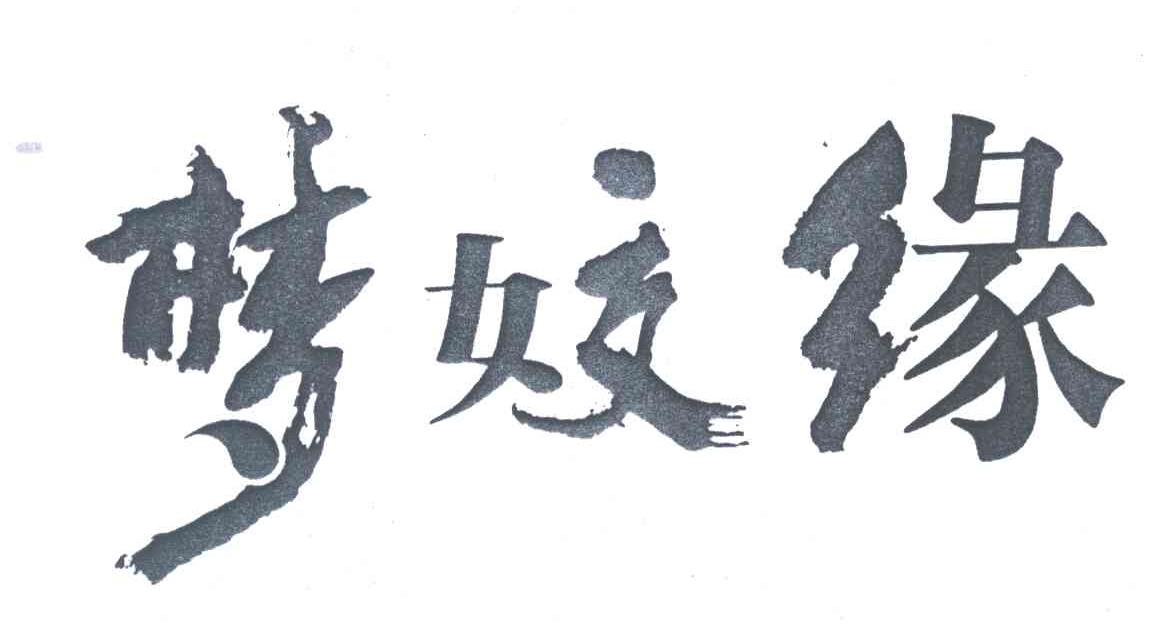 梦姣缘